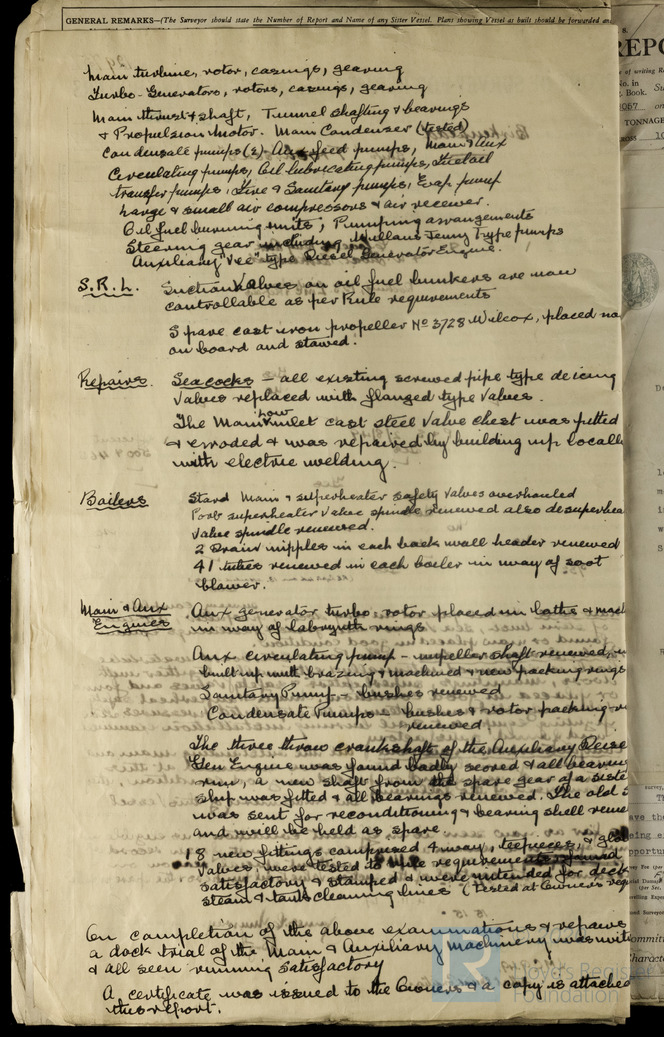 GENERAL REMARKS—(The Surveyor should state the Number of Report and Name of any Sister Vessel. Plans showing Vessel as built should be forwarded and
Main turbine, rotor, casings, gearing
Turbo-Generators, rotors, casings, gearing
Main thrust & shaft, Tunnel shafting & bearings
& Propulsion Motor. Main Condenser (tested)
Condensate pumps (2) - Aux feed pumps, Main & Aux
Circulating pumps, Oil lubricating pumps, Fuel oil
transfer pumps, Fire & Sanitary pumps, Evap pump
Large & small air compressors & air receiver.
Oil fuel burning units, Pumping arrangements
Steering gear including Williams Jenny Type pumps
Auxiliary "Vee" type Diesel Generator Engine.
S.R.L. Suction Valves on oil fuel bunkers are now
controllable as per Rule requirements
Spare cast iron propeller No 3728 Wilcox, placed
on board and stowed.
Repairs. Seacocks - all existing screwed pipe type deicing
Valves replaced with flanged type Valves.
The Main Low inlet cast steel Valve chest was pitted
& erroded & was repaired by building up locall
with electric welding.
Boilers Starbd Main & superheater safety Valves overhauled
Port superheater Valve spindle renewed also desuperhea
Valve spindle renewed.
2 Drain nipples in each back wall header renewed
41 tubes renewed in each boiler in way of soot
blower.
Main & Aux Engines Aux generator turbo: rotor placed in lathe & mach
in way of labrynth rings
Aux circulating pump - impellor shaft renewed,
built up with brazing & machined & new packing rings
Sanitary Pump - bushes renewed
Condensate Pumps - bushes & rotor packing
renewed
The three throw crankshaft of the Auxiliary Deise
Gen Engine was found badly scored & all bearin
run, a new shaft from the spare gear of a siste
ship was fitted & all bearings renewed. The old S
was sent for reconditioning & bearing shell rene
and will be held as spare.
18 new fittings comprised 4 way, teepieces, & glo
Valves, were tested to rule requirements found
satisfactory & stamped & were intended for deck
steam & tank cleaning lines (tested at Owners req
On completion of the above examinations & repairs
a dock trial of the Main & Auxiliary machinery was wit
& all seen running satisfactory
A certificate was issued to the Owners & a copy is attached
this report.
Lloyd's Register
Foundation